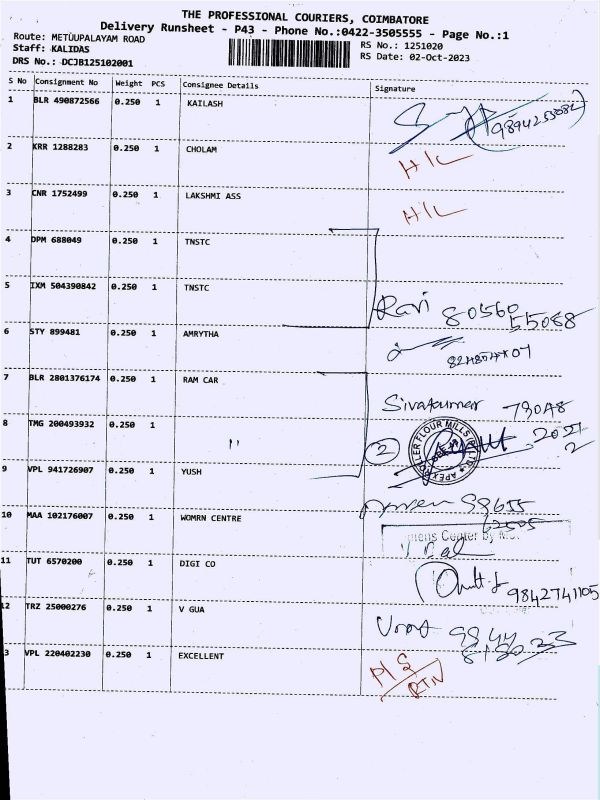 THE PROFESSIONAL COURIERS, COIMBATORE
Delivery Runsheet - P43 - Phone No.:0422-3505555 - Page No.:1
Route: METUUPALAYAM ROAD
Staff: KALIDAS
DRS No.: DCJB125102001
RS No.: 1251020
RS Date: 02-Oct-2023
S No Consignment No Weight PCS Consignee Details Signature
1 BLR 490872566 0.250 1 KAILASH
2 KRR 1288283 0.250 1 CHOLAM H/L
3 CNR 1752499 0.250 1 LAKSHMI ASS H/L
4 DPM 688049 0.250 1 TNSTC
5 IXM 504390842 0.250 1 TNSTC Ravi 80560
55088
6 STY 899481 0.250 1 AMRYTHA
7 BLR 2801376174 0.250 1 RAM CAR Sivakumar
8 TMG 200493932 0.250 1 " 2
ROLLER FLOUR MILLS
9 VPL 941726907 0.250 1 YUSH
10 MAA 102176007 0.250 1 WOMRN CENTRE
Center By
11 TUT 6570200 0.250 1 DIGI CO 9842741105
12 TRZ 25000276 0.250 1 V GUA
3 VPL 220402230 0.250 1 EXCELLENT P/S
RTN